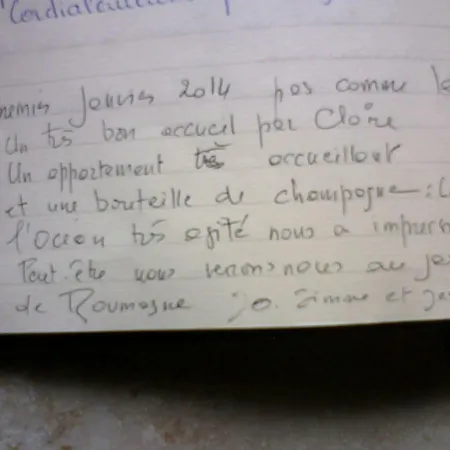 Cordialement
Janvier 2014 pas comme le
Un très bon accueil par Claire
Un appartement très accueillant
et une bouteille de champagne
l'océan très agité nous a
Peut-être nous nous au
de Roumagne et